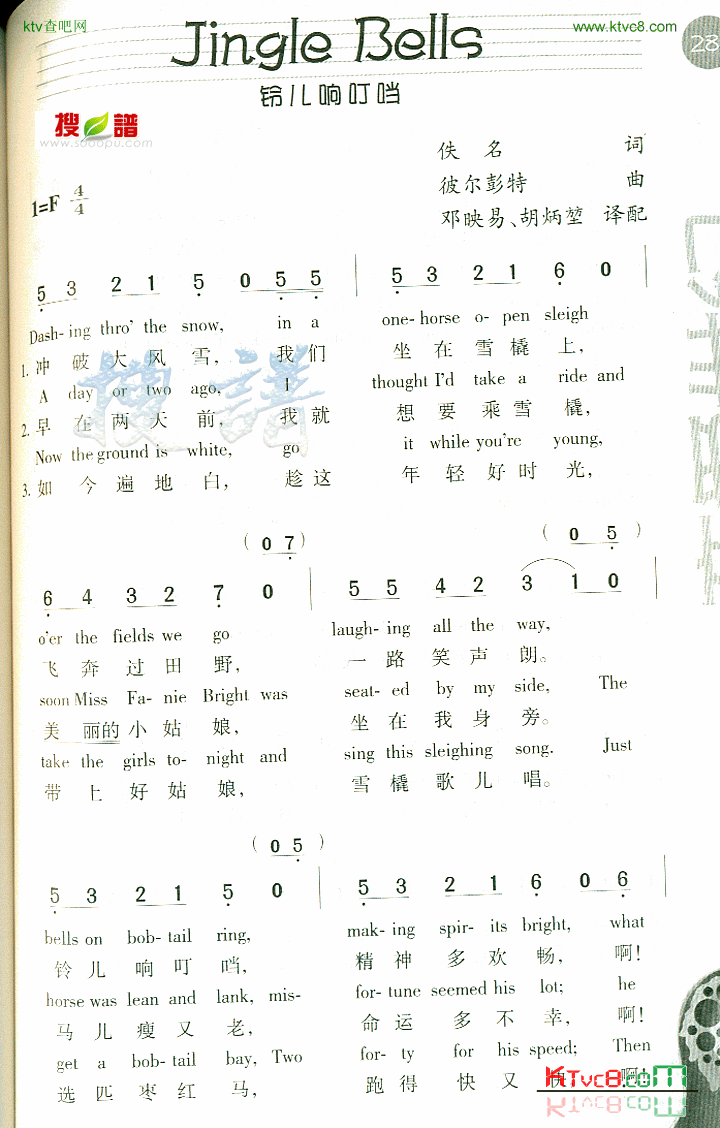 ktv查吧网
www.ktvc8.com
Jingle Bells
28
铃儿响叮当
搜譜
www.sooopu.com
佚名 词
彼尔彭特 曲
邓映易、胡炳堃 译配
1=F 4/4
5 3 2 1 5 0 5 5 | 5 3 2 1 6 0 |
Dash- ing thro' the snow, in a one- horse o- pen sleigh
1. 冲破大风雪, 我们坐在雪橇上,
A day or two ago, I thought I'd take a ride and
2. 早在两天前, 我就想要乘雪橇,
Now the ground is white, go it while you're young,
3. 如今遍地白, 趁这年轻好时光,
(0 7) (0 5)
6 4 3 2 7 0 | 5 5 4 2 3 1 0 |
o'er the fields we go laugh- ing all the way,
飞奔过田野, 一路笑声朗。
soon Miss Fa- nie Bright was seat- ed by my side, The
美丽的小姑娘, 坐在我身旁。
take the girls to- night and sing this sleighing song. Just
带上好姑娘, 雪橇歌儿唱。
(0 5)
5 3 2 1 5 0 | 5 3 2 1 6 0 6 |
bells on bob- tail ring, mak- ing spir- its bright, what
铃儿响叮当, 精神多欢畅, 啊!
horse was lean and lank, mis- for- tune seemed his lot; he
马儿瘦又老, 命运多不幸, 啊!
get a bob- tail bay, Two for- ty for his speed; Then
选匹枣红马, 跑得快又快 啊!
KTvc8.com